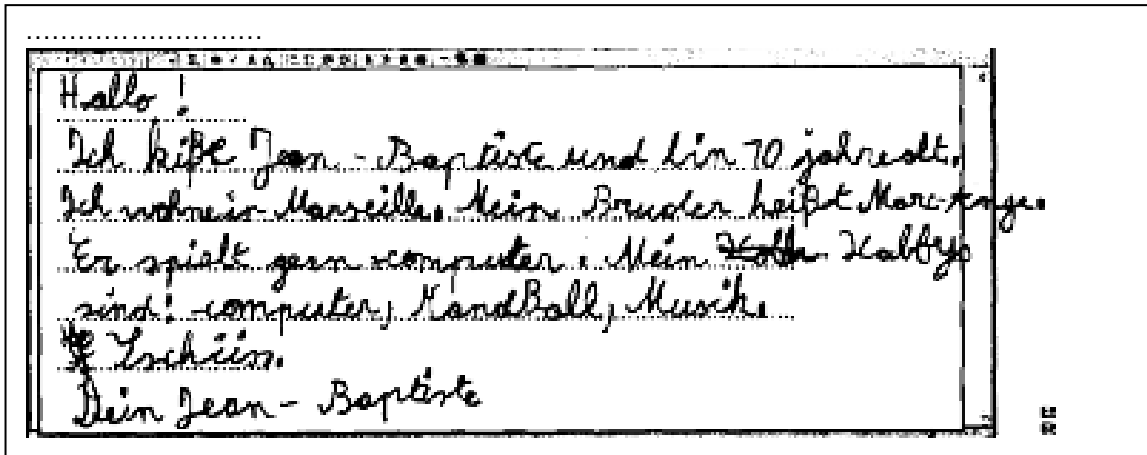 Hallo !
Ich hiße Jean - Baptiste und bin 10 jahrealt.
Ich wohne in Marseille. Mein Bruder heißt Marc-Ange.
Er spielt gern computer. Mein Hobbys
sind: computer, HandBall, Musik.
Tschüss.
Dein Jean - Baptiste